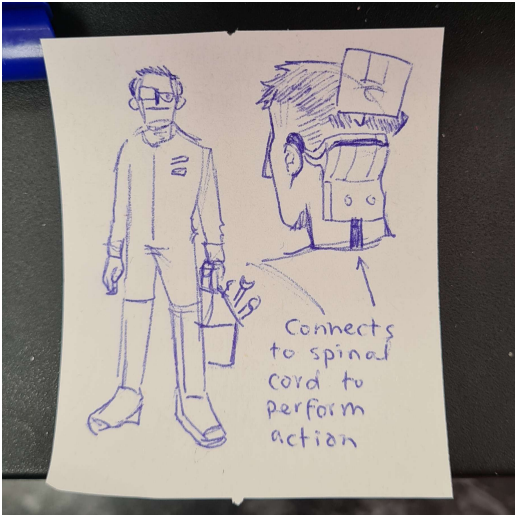 Connects
to spinal
cord to
perform
action